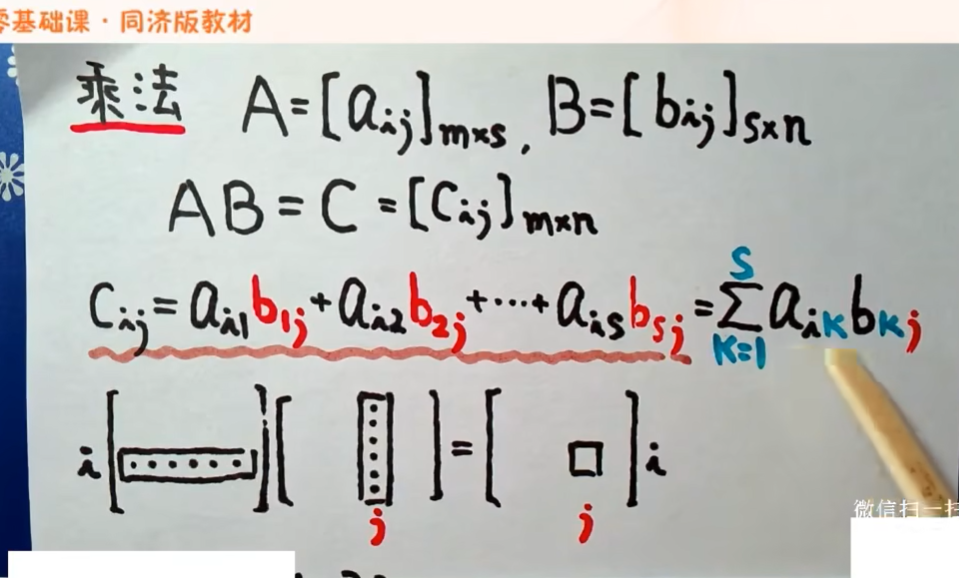 零基础课·同济版教材
乘法 A=[aij]m×s, B=[bij]s×n
AB=C=[Cij]m×n
Cij=ai1b1j+ai2b2j+···+aisbsj=∑k=1 s aikbkj
i [ ] [ ] = [ ] i
j j
微信扫一扫